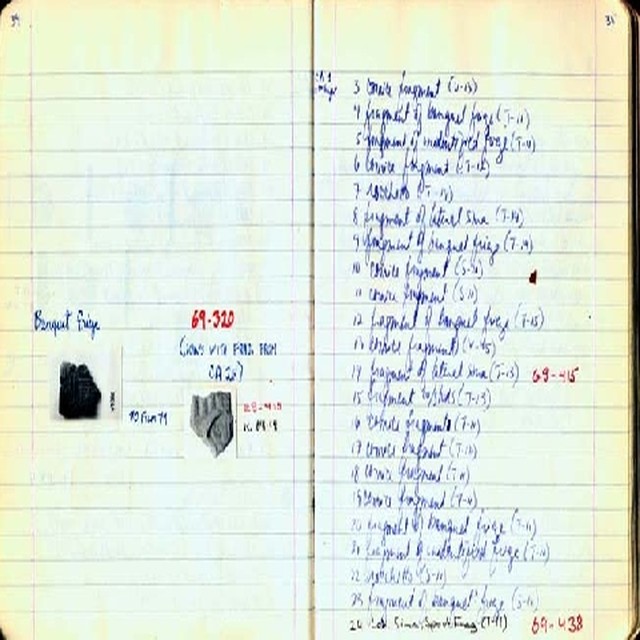 34
Banquet frieze
69-320
(JOINS WITH FRAG. FROM
CA 26)
35
3 Cornice fragment (U-13)
4 fragment of banquet frieze (T-11)
5 fragment of frieze (T-11)
6 cornice fragment (T-12)
7 rosettes (T-12)
8 fragment of lateral sima (T-14)
9 fragment of banquet frieze (T-14)
10 cornice fragment
11 cornice fragment (S-11)
12 fragment of banquet frieze (T-15)
13 cornice fragment
14 fragment of lateral sima (T-13) 69-415
15 fragment (T-13)
16 cornice fragments (T-11)
17 cornice fragment (T-12)
18 cornice fragment (T-11)
19 cornice fragment (T-11)
20 fragment of banquet frieze (T-11)
21 fragment of frieze (T-11)
22 rosettes (S-11)
23 fragment of banquet frieze (S-11)
24 Lat. Sima Spout Frag. (T-11) 69-438